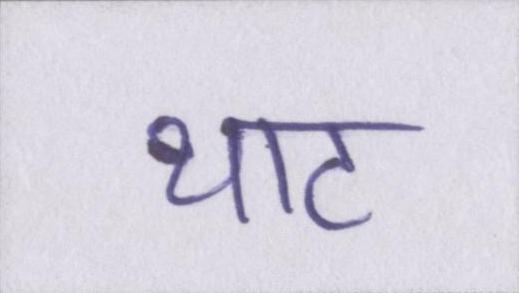 थाट